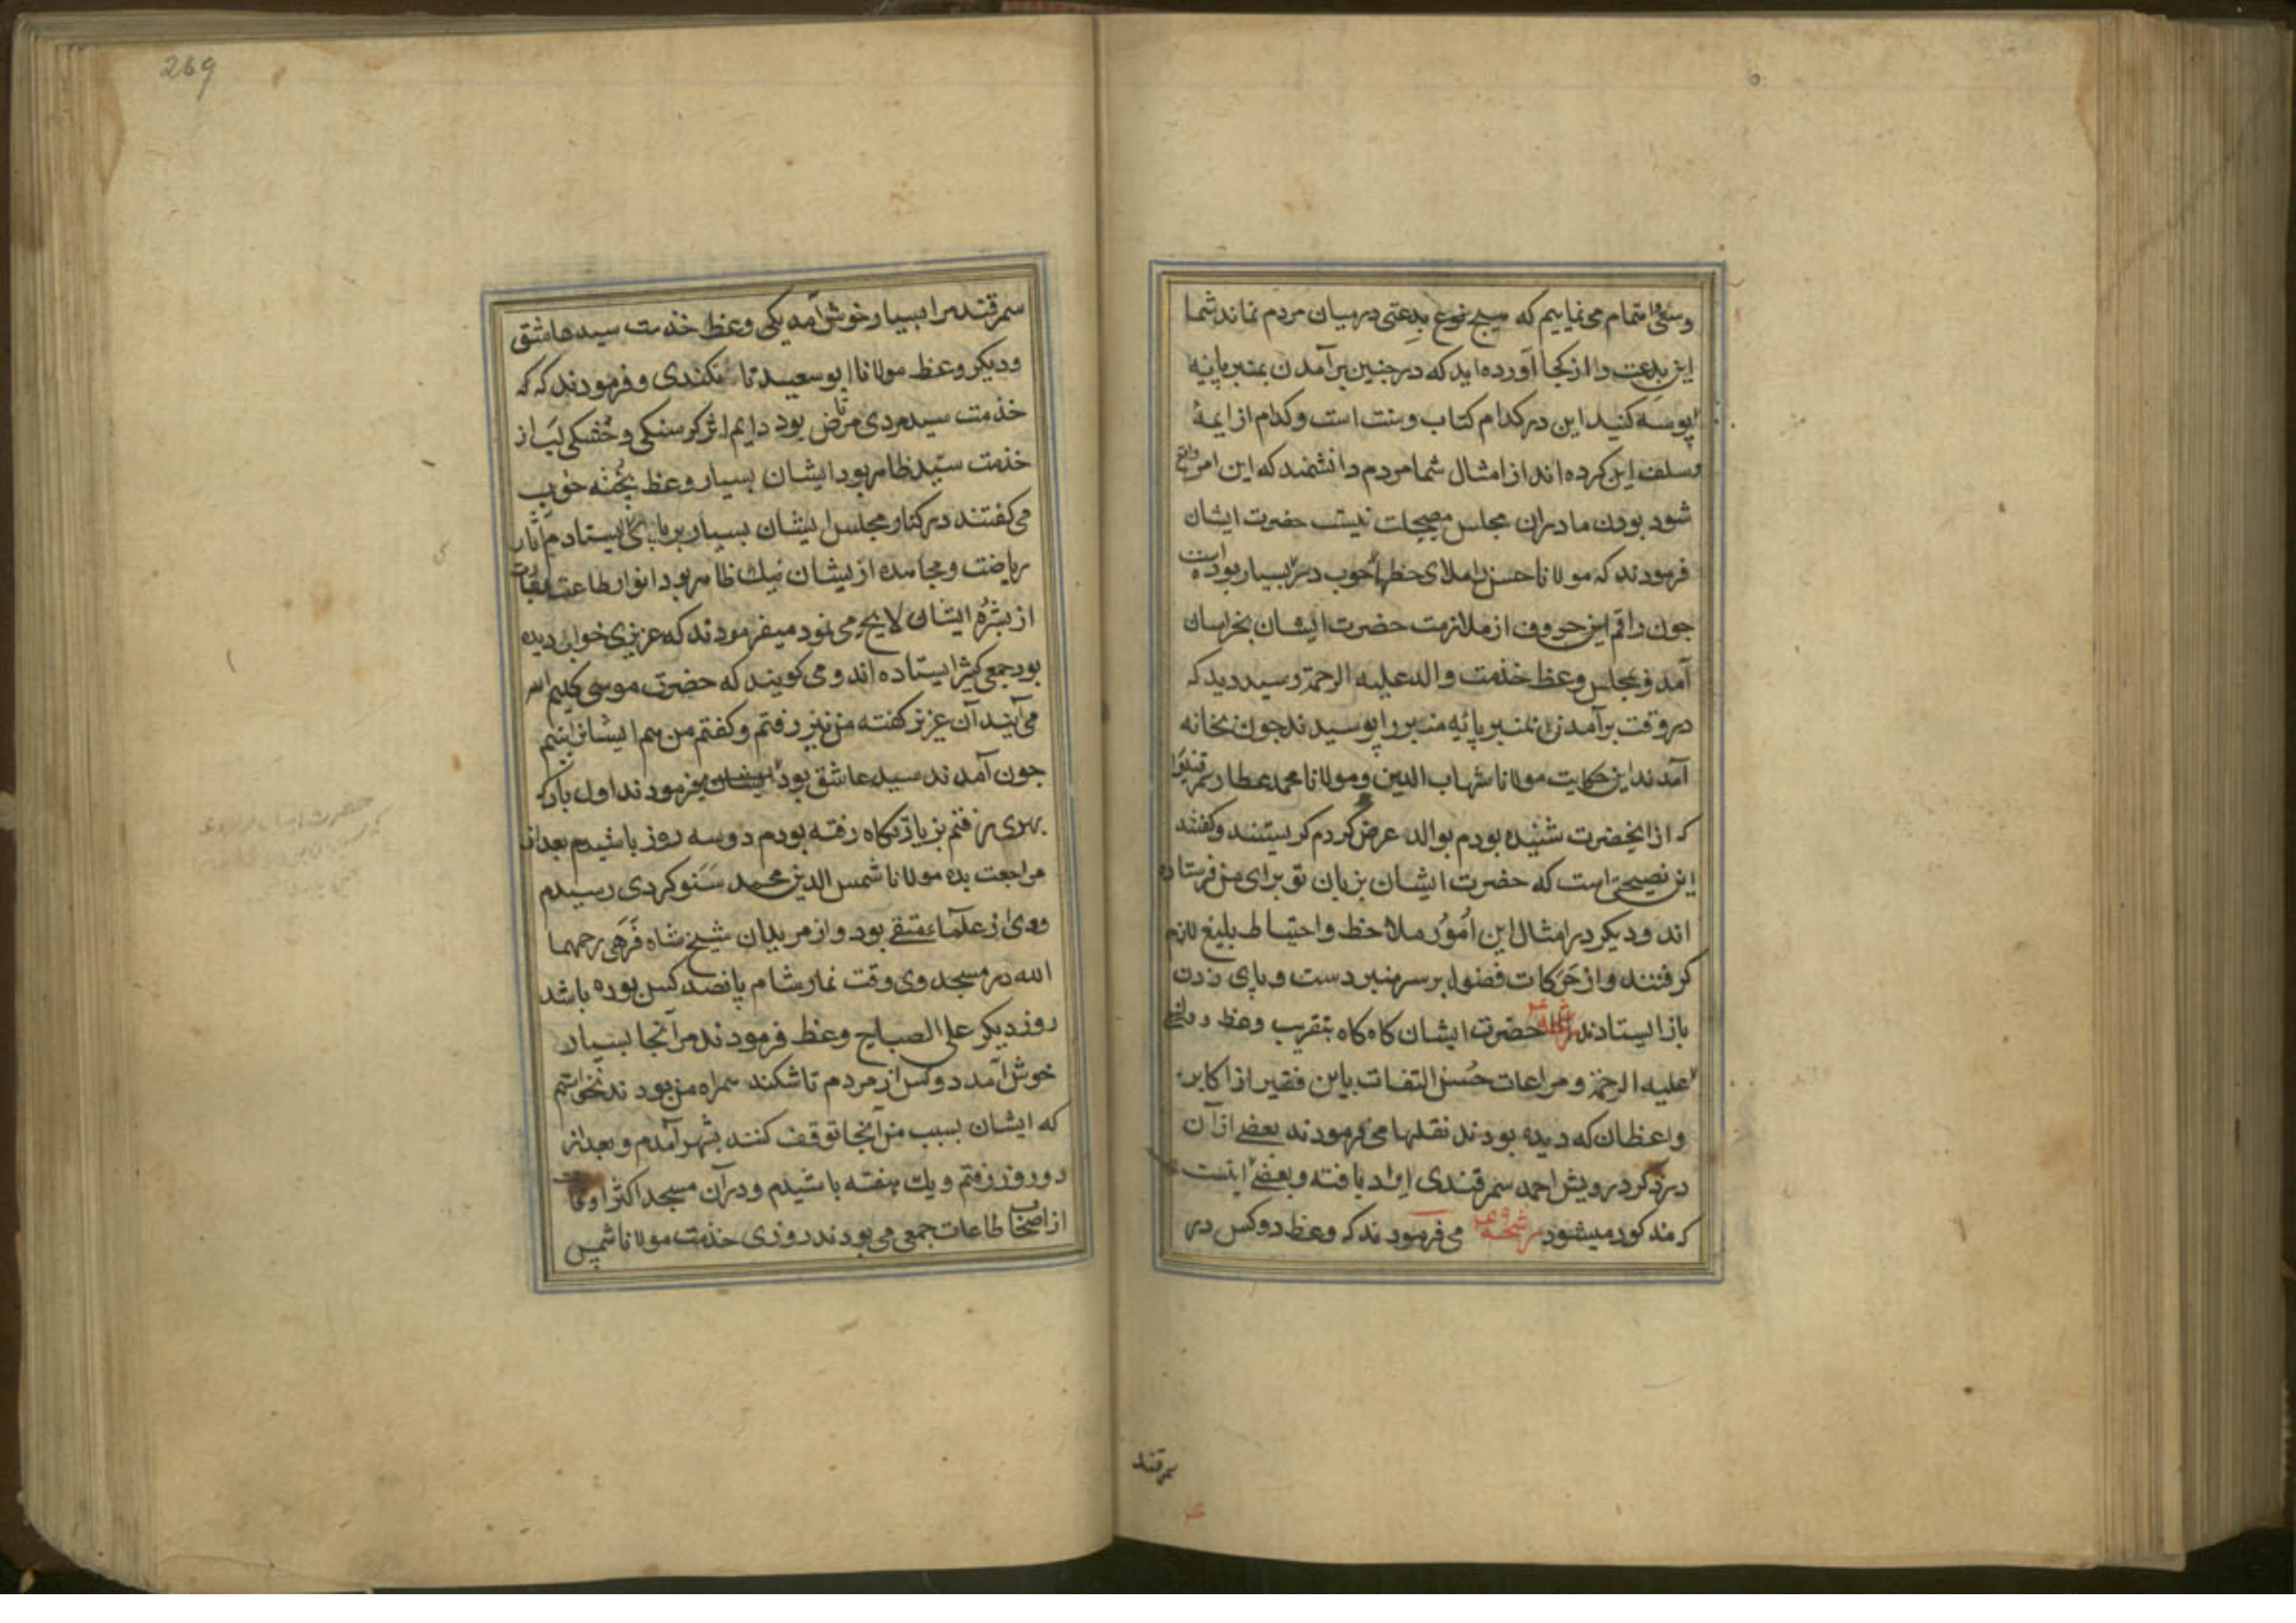 وسعی و اهتمام می نماییم که هیچ نوع بدعتی در میان مردم نماند شما
این بدعت را از کجا آورده اید که در چنین بر آمدن بمنبر پایه
بوسه کنید این در کدام کتاب و سنت است و کدام از ایمهٔ
سلف این کرده اند از امثال شما مردم دانشمند که این امر واقع
شود بودن ما در ان مجلس نیست حضرت ایشان
فرمودند که مولانا حسن را ملای خوب در سر بسیار بوده است
جون راقم این حروف از ملازمت حضرت ایشان بخراسان
آمد و بمجلس وعظ خذمت والد علیه الرحمة رسید دید که
در وقت بر آمدن بمنبر پائیه منبر را بوسیدند جون بخانه
آمدند این حکایت مولانا شهاب الدین و مولانا محمد عطار سمرقندی را
که از انحضرت شنیده بودم بوالد عرض کردم کریستند و کفتند
این نصیحتی است که حضرت ایشان بزبان تو برای من فرستاده
اند و دیکر در امثال این اُمُور ملاحظ و احتیاط بلیغ لازم
کرفتند و از حَرَکات فضول بر سر منبر دست و پای زدن
باز ایستادند رشحه حضرت ایشان کاه کاه بتقریب وعظ والد
علیه الرحمة و مراعات حُسن التفات باین فقیر از اکابر
واعظان که دیده بودند نقلها می فرمودند بعضی از آن
در ذکر درویش احمد سمرقندی ایراد یافته و بعضی اینست
که مذکور میشود رشحه می فرمودند که وعظ دو کس در
سمرقند
269
سمرقند مرا بسیار خوش آمد یکی وعظ خذمت سید عاشق
و دیکر وعظ مولانا ابو سعید تاشکندی و فرمودند که که
خذمت سید مردی مرتاض بود دایم اثر کرسنکی و خُشکی لب از
خذمت سیّد ظاهر بود ایشان بسیار وعظ پُخته خوب
می کفتند در کنار مجلس ایشان بسیار بر پای ایستادم آثار
ریاضت و مجاهده از یشان نیک ظاهر بود انوار طاعت
از بشرهٔ ایشان لایح می نمود میفرمودند که عزیزی خواب دیده
بود جمعی کثیر ایستاده اند و می کویند که حضرت موسی کلیم الله
می آیند آن عزیز کفته من نیز رفتم و کفتم من هم ایشانرا بینم
جون آمدند سید عاشق بود میفرمودند اول بار که
بهری می رفتم بزیارتکاه رفته بودم دو سه روز باشیدم بعد از
مراجعت بده مولانا شمس الدین محمد سَنَوکردی رسیدم
ووی از علماء متقی بود و از مریدان شیخ شاه فَرَهی رحمهما
الله در مسجد وی وقت نماز شام پانصد کس بوده باشد
روز دیکر علی الصباح وعظ فرمودند مرا آنجا بسیار
خوش آمد دو کس از مردم تاشکند همراه من بودند نخواستم
که ایشان بسبب من آنجا توقف کنند بشهر آمدم و بعد از
دو روز رفتم و یک هفته باشیدم و در آن مسجد اکثر اوقات
از اصحاب طاعات جمعی می بودند روزی خذمت مولانا شمس